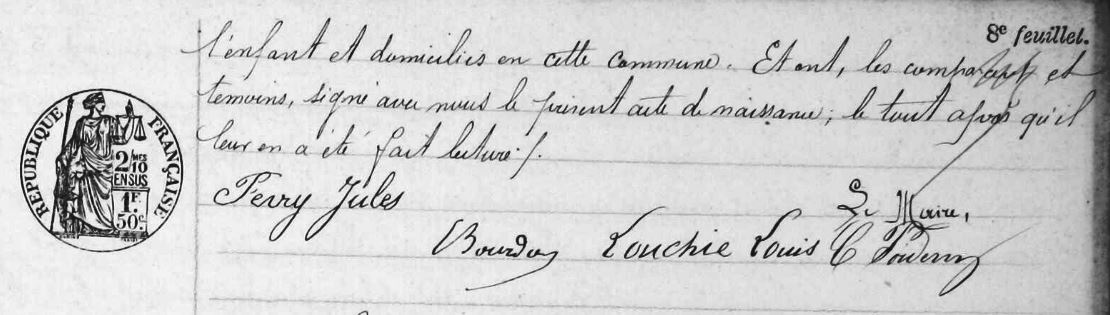 8e feuillet.
l'enfant et domiciliés en cette commune. Et ont, les comparant et
temoins, signé avec nous le présent acte de naissance; le tout après qu'il
leur en a été fait lecture./.
RÉPUBLIQUE FRANÇAISE
2/10 MES
EN SUS
1F
50c.
Ferry Jules
Le Maire,
Bourdon Louchie Louis C